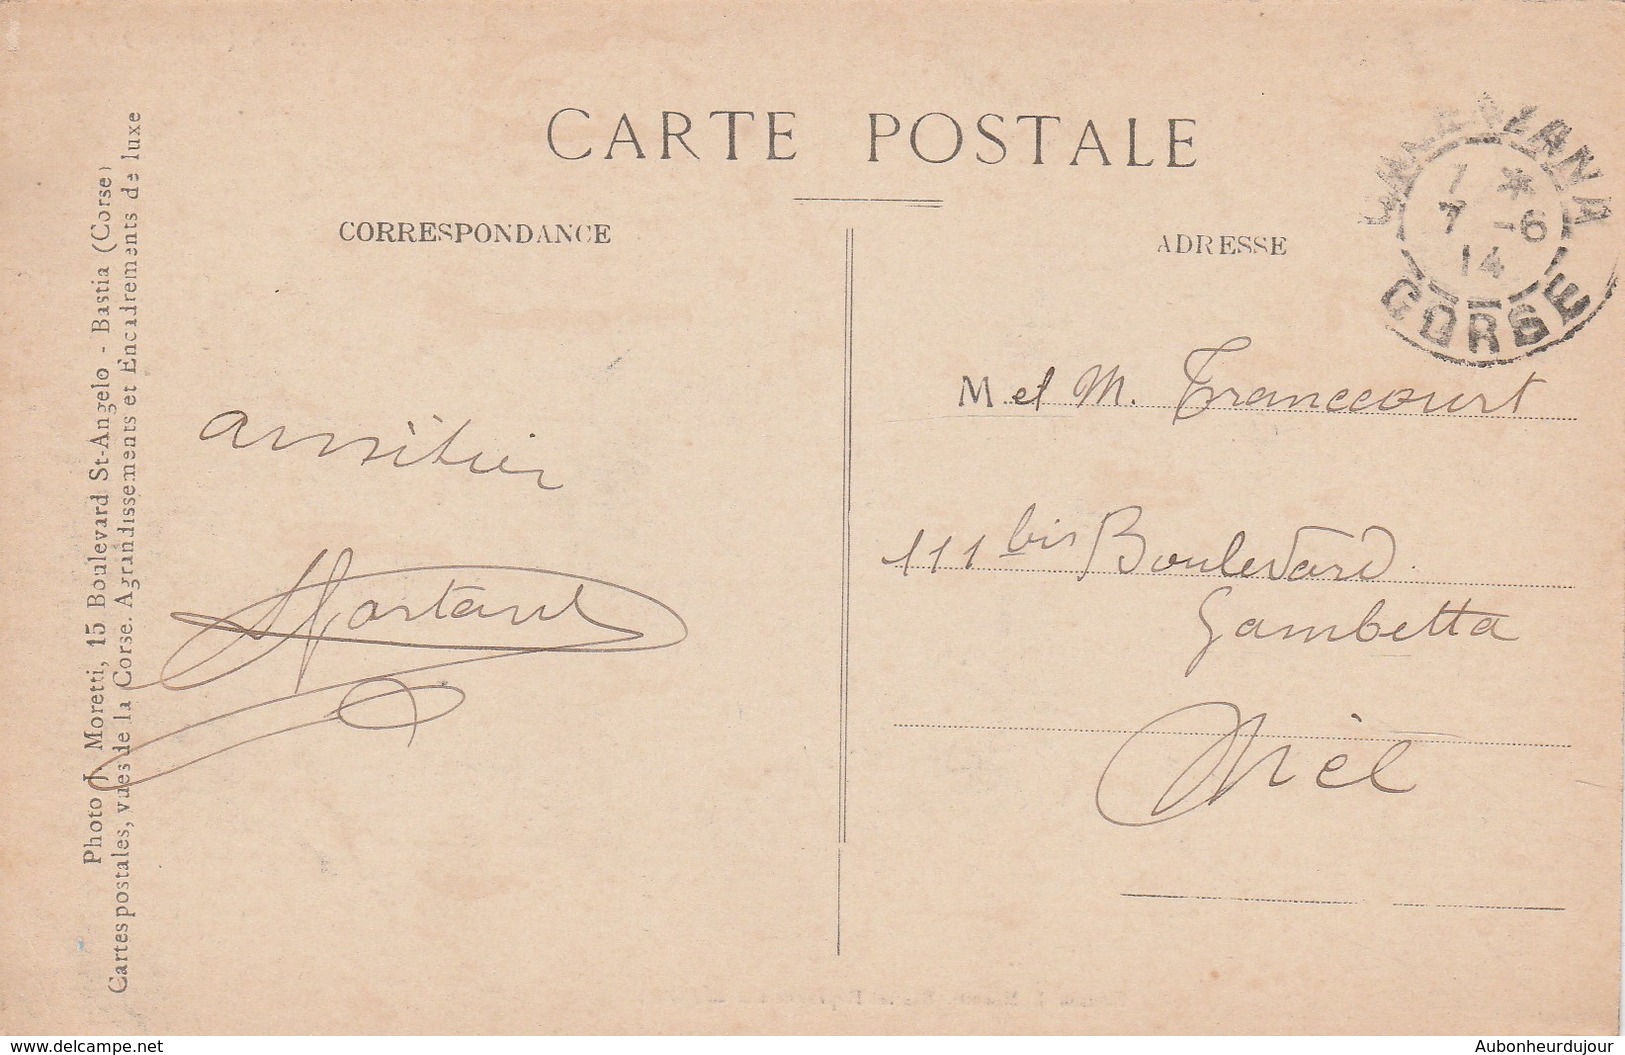 CARTE POSTALE
CORRESPONDANCE
ADRESSE
CALENZANA
7 *
7 -6
14
CORSE
Photo J. Moretti, 15 Boulevard St-Angelo - Bastia (Corse)
Cartes postales, vues de la Corse. Agrandissements et Encadrements de luxe
M et M. Francourt
111 bis Boulevard
Gambetta
www.delcampe.net
Aubonheurdujour